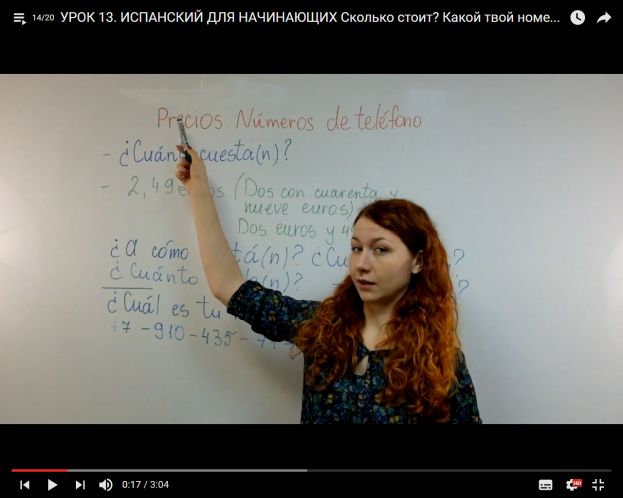 14/20 УРОК 13. ИСПАНСКИЙ ДЛЯ НАЧИНАЮЩИХ Сколько стоит? Какой твой номе...
Precios. Números de teléfono.
- ¿Cuánt cuesta(n)?
- 2,49 e os (Dos con cuarenta y
nueve euros)
Dos euros y 4
¿A cómo tá(n)? ¿Cu ?
¿Cuánto le(n)? ?
¿Cuál es tu
+7 - 910 - 435 -
0:17 / 3:04
HD